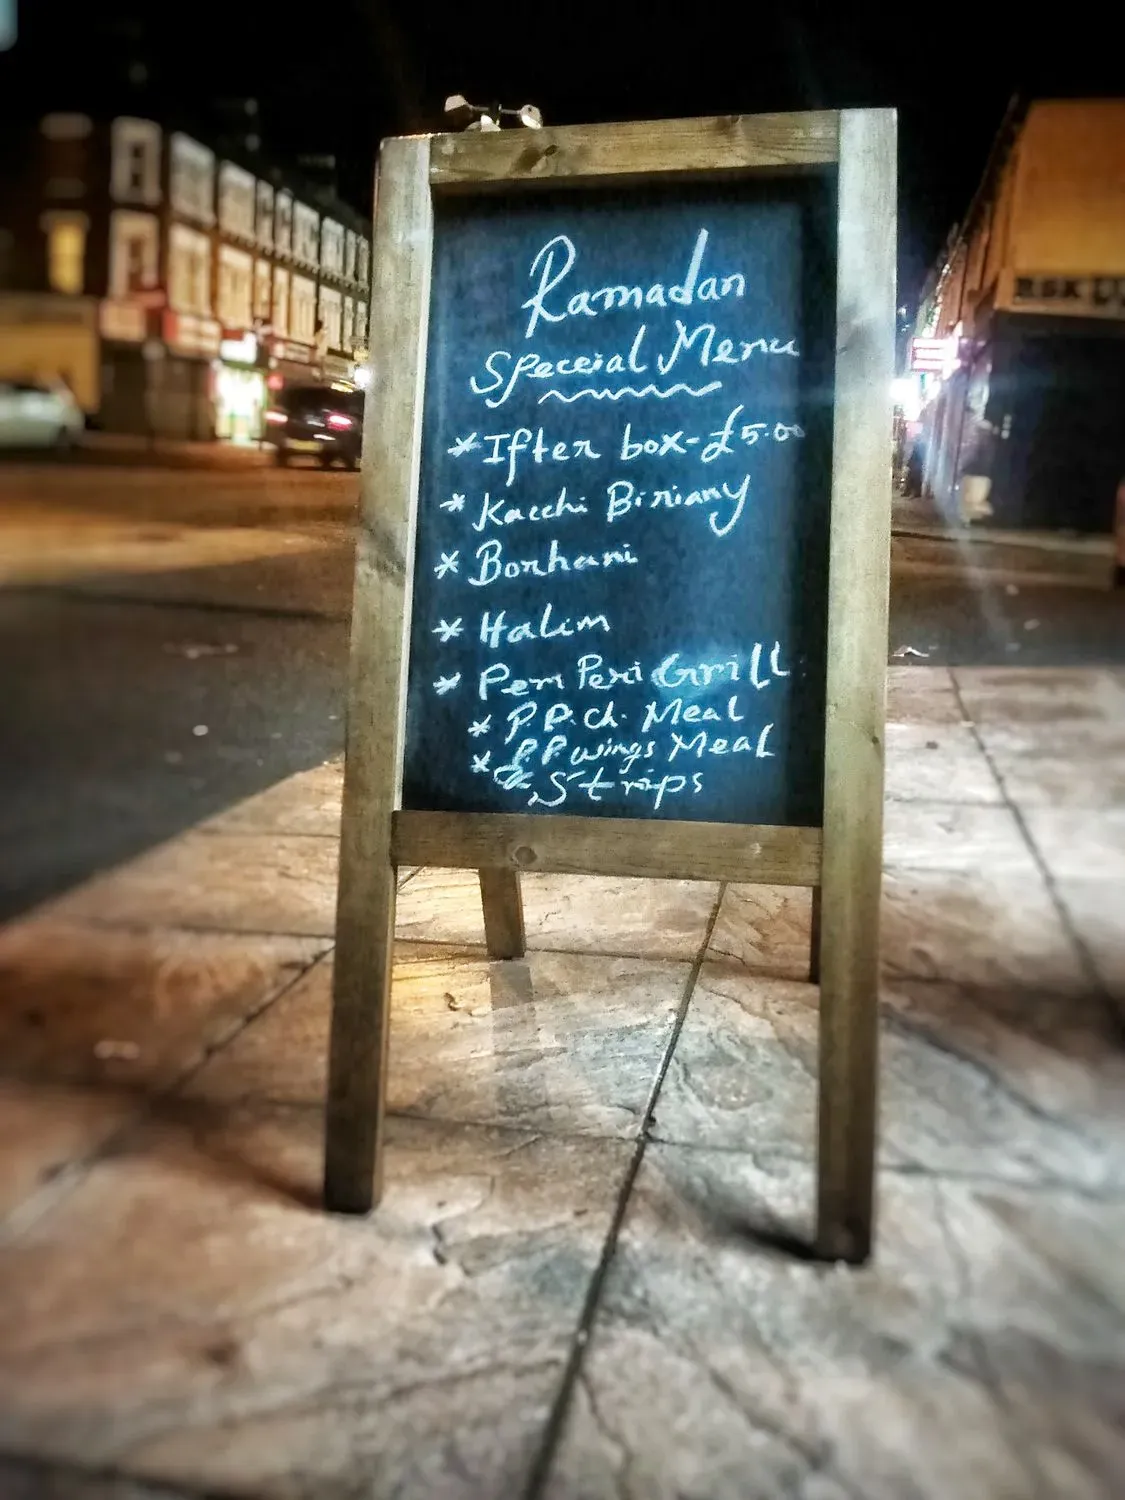 Ramadan
Speceial Menu
* Ifter box - £5.00
* Kacchi Biriany
* Borhani
* Halim
* Peri Peri Grill
* P.P. Ch. Meal
* P.P wings Meal
& Strips